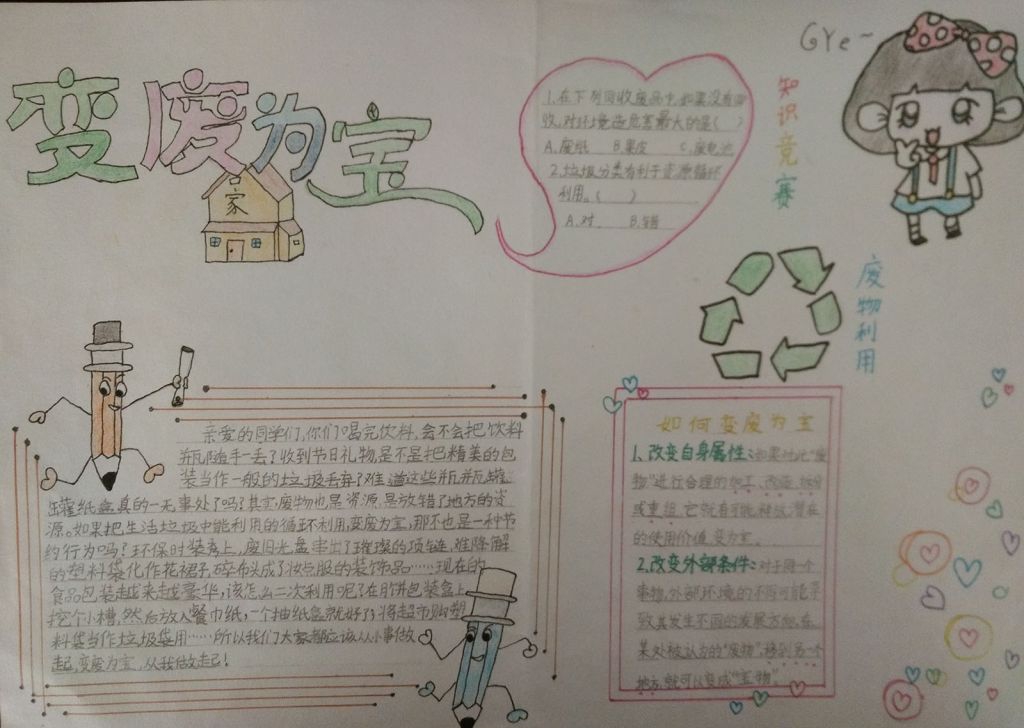 变废为宝
家
1.在下列回收废品中,如果没有回
收,对环境造危害最大的是( )
A.废纸 B.果皮 C.废电池
2.垃圾分类有利于资源循环
利用。( )
A.对 B.错
知识竞赛
GYe~
废物利用
亲爱的同学们,你们喝完饮料,会不会把饮料
瓶随手一丢了收到节日礼物,是不是把精美的包
装当作一般的垃圾丢弃了难道这些瓶瓶罐
罐纸盒真的一无事处了吗?其实废物也是资源,是放错了地方的资
源。如果把生活垃圾中能利用的循环利用,变废为宝,那不也是一种节
约行为吗?环保时装秀上,废旧光盘串出了璀璨的项链,难降解
的塑料袋化作花裙子,碎布头成了衣服的装饰品……现在的
食品包装越来越豪华,该怎么二次利用呢?在月饼包装盒上
挖个小槽,然后放入餐巾纸,一个抽纸盒就好了,将超市购塑
料袋当作垃圾袋用……所以我们大家都应该从小事做
起,变废为宝,从我做起!
如何变废为宝
1.改变自身属性:如果对此“废
物”进行合理的加工、改造、拆分
或重组,它就有可能释放潜在
的使用价值,变为宝。
2.改变外部条件:对于同一个
事物,外部环境的不同可能导
致其发生不同的发展方向,在
某处被认为的“废物”,移到另一个
地方,就可以变成“宝物”。